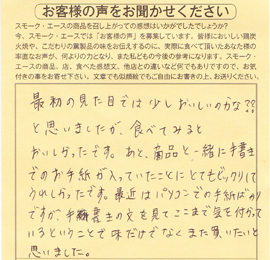 お客様の声をお聞かせください
スモーク・エースの商品を召し上がっての感想はいかがでしたでしょうか?
今、スモーク・エースでは「お客様の声」を募集しています。皆様においしい鶏炭
火焼や、こだわりの薫製品の味をお伝えするのに、実際に食べて頂いたあなた様の
率直なお声が、何よりの力となり、また私どもの今後の参考になります。スモーク・
エースの商品、店、食べた感想文、他店との違いなど何でもありですので、お気
付きの事をお寄せ下さい。文章でも似顔絵でもご自由にお書きの上、お送りください。
最初の見た目では少しおいしいのかな??
と思いましたが、食べてみると
おいしかったです。あと、商品と一緒に手書き
でのお手紙が入っていたことにとてもびっくりして
うれしかったです。最近はパソコンでの手紙ばかり
ですが、手書きの文を見てここまで気を付かって
いるということで味だけでなくまた買いたいと
思いました。